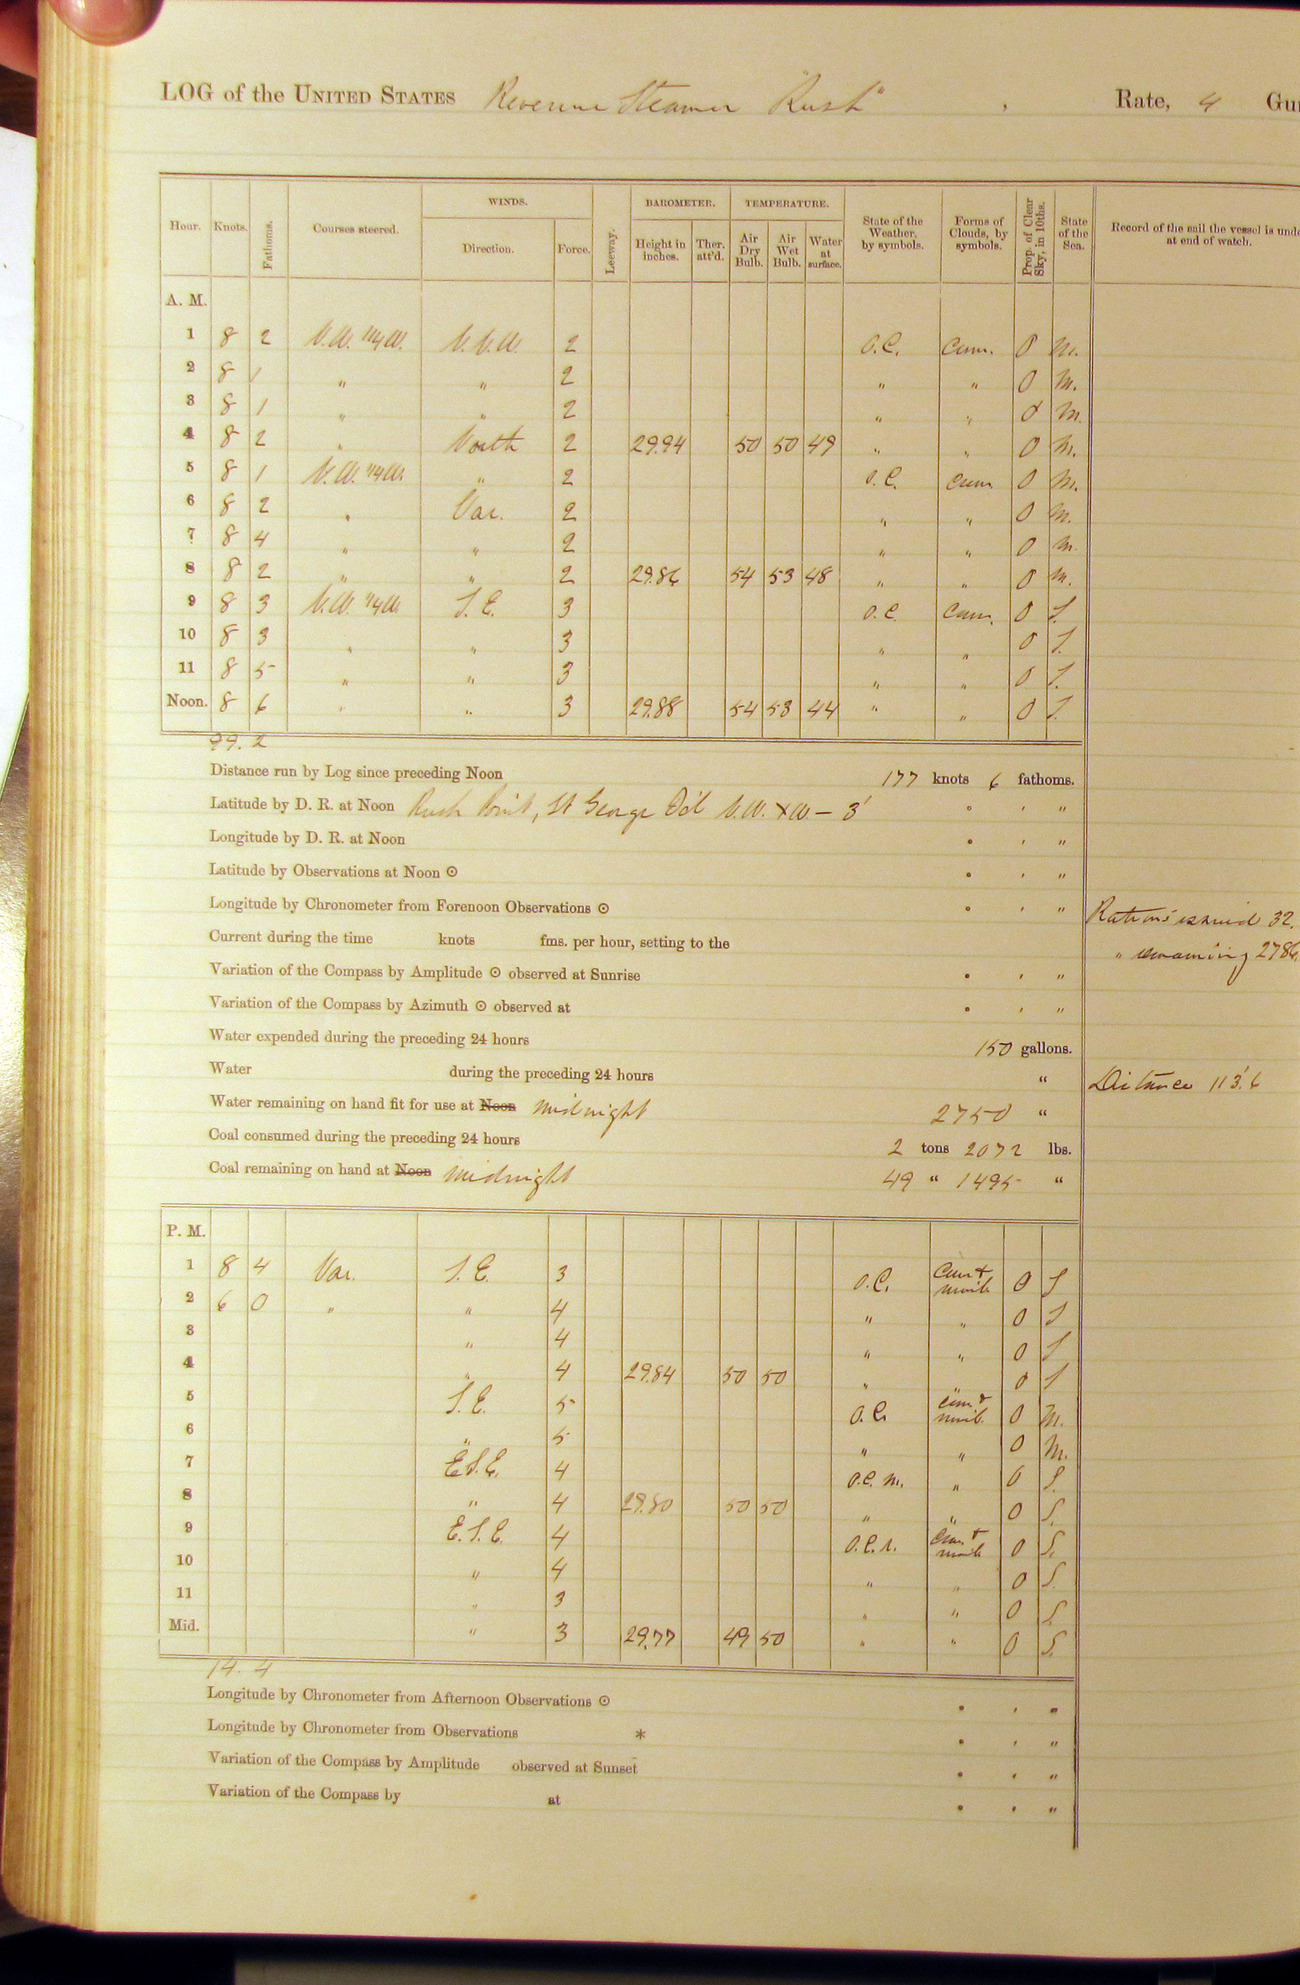 LOG of the UNITED STATES Revenue Steamer "Rush", Rate, 4 Gu
Hour. Knots. Fathoms. Courses steered. WINDS. Direction. Force. Leeway. BAROMETER. Height in inches. Ther. att'd. TEMPERATURE. Air Dry Bulb. Air Wet Bulb. Water at surface. State of the Weather, by symbols. Forms of Clouds, by symbols. Prop. of Clear Sky, in 10ths. State of the Sea. Record of the sail the vessel is unde at end of watch.
A. M.
1 8 2 N.W. 1/4 W. N.N.W. 2 O.C. Cum. 0 M.
2 8 1 " " 2 " " 0 M.
3 8 1 " " 2 " " 0 M.
4 8 2 " North 2 29.94 50 50 49 " " 0 M.
5 8 1 N.W. 1/4 W. " 2 O.C. Cum. 0 M.
6 8 2 " Var. 2 " " 0 M.
7 8 4 " " 2 " " 0 M.
8 8 2 " " 2 29.86 54 53 48 " " 0 M.
9 8 3 N.W. 1/4 W. S.E. 3 O.C. Cum. 0 S.
10 8 3 " " 3 " " 0 S.
11 8 5 " " 3 " " 0 S.
Noon. 8 6 " " 3 29.88 54 53 44 " " 0 S.
99. 2
Distance run by Log since preceding Noon 177 knots 6 fathoms.
Latitude by D. R. at Noon Rush Point, St George I'd N.W. x W – 3' ° ' "
Longitude by D. R. at Noon ° ' "
Latitude by Observations at Noon ⊙ ° ' "
Longitude by Chronometer from Forenoon Observations ⊙ ° ' " Rations issued 32.
Current during the time knots fms. per hour, setting to the " remaining 2786.
Variation of the Compass by Amplitude ⊙ observed at Sunrise ° ' "
Variation of the Compass by Azimuth ⊙ observed at ° ' "
Water expended during the preceding 24 hours 150 gallons.
Water during the preceding 24 hours " Distance 113'.6
Water remaining on hand fit for use at Noon Midnight 2750 "
Coal consumed during the preceding 24 hours 2 tons 2072 lbs.
Coal remaining on hand at Noon Midnight 49 " 1495 "
P. M.
1 8 4 Var. S.E. 3 O.C. Cum & nimb 0 S
2 6 0 " " 4 " " 0 S
3 " 4 " " 0 S
4 " 4 29.84 50 50 " " 0 S
5 S.E. 5 O.C. Cum. & nimb. 0 M.
6 " 5 " " 0 M.
7 E.S.E. 4 O.C.M. " 0 S.
8 " 4 29.80 50 50 " " 0 S.
9 E.S.E. 4 O.C.r. Cum & nimb 0 S.
10 " 4 " " 0 S.
11 " 3 " " 0 S.
Mid. " 3 29.77 49 50 " " 0 S.
14. 4
Longitude by Chronometer from Afternoon Observations ⊙ ° ' "
Longitude by Chronometer from Observations * ° ' "
Variation of the Compass by Amplitude observed at Sunset ° ' "
Variation of the Compass by at ° ' "